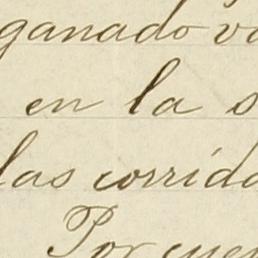 ganado
en la
las corrida
Por cuen